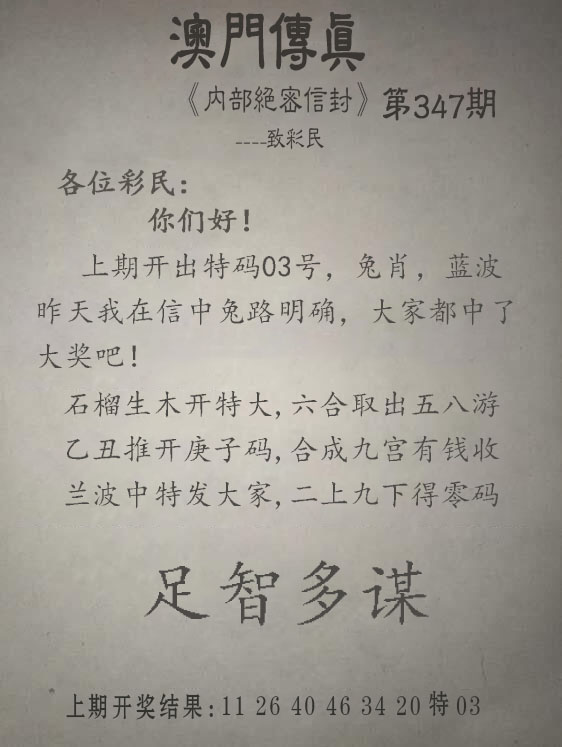 澳門傳眞
《内部絕密信封》第347期
----致彩民
各位彩民:
你们好!
上期开出特码03号，兔肖，蓝波
昨天我在信中兔路明确，大家都中了
大奖吧!
石榴生木开特大,六合取出五八游
乙丑推开庚子码,合成九宫有钱收
兰波中特发大家,二上九下得零码
足智多谋
上期开奖结果:11 26 40 46 34 20 特 03